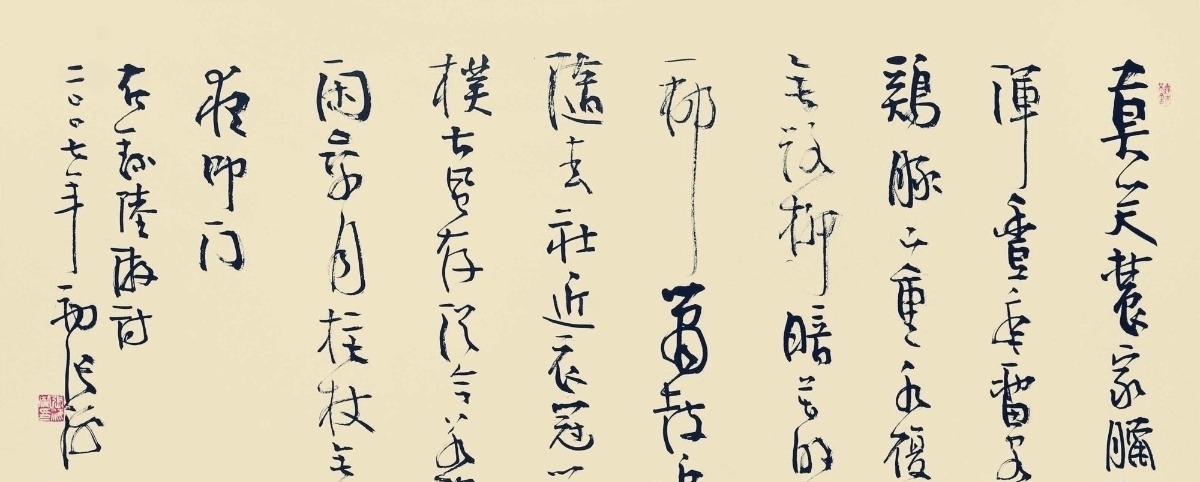 莫笑農家臘
渾豐年留客
鷄豚山重水復
無路柳暗花明
一邨簫鼓
隨春社近衣冠
樸古風存從今若
閑乘月拄杖無
夜叩門
右錄陸游詩
二〇〇七年初張海